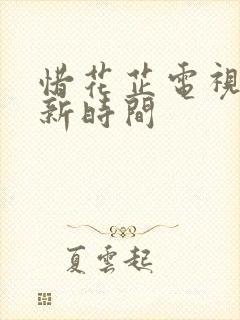 惜花芷電視
新時間
夏雲起